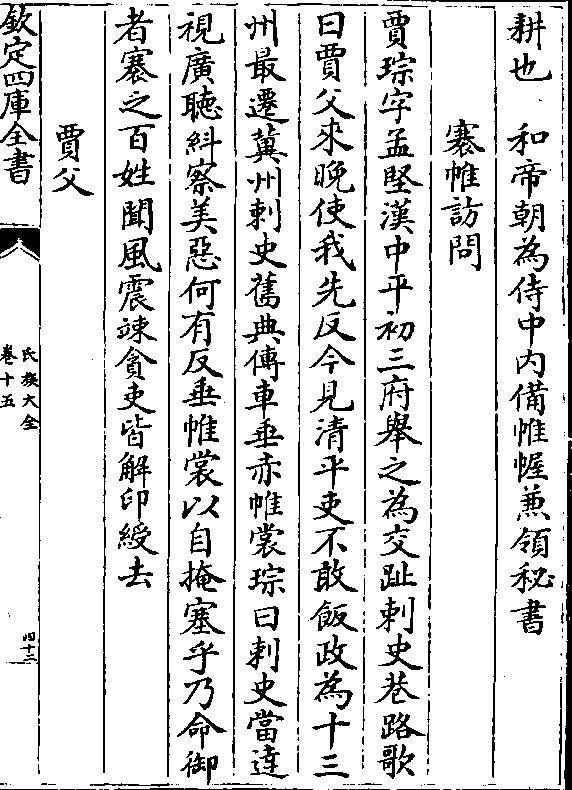 耕也　和帝朝為侍中内備帷幄兼領秘書
褰帷訪問
賈琮字孟堅漢中平初三府舉之為交趾刺史巷路歌
曰賈父來晚使我先反今見清平吏不敢飯政為十三
州最遷冀州刺史舊典傳車垂赤帷裳琮曰刺史當逺
視廣聽糾察美惡何有反垂帷裳以自掩塞乎乃命御
者褰之百姓聞風震竦貪吏皆解印綬去
賈父
欽定四庫全書
氏族大全
卷十五
四十三